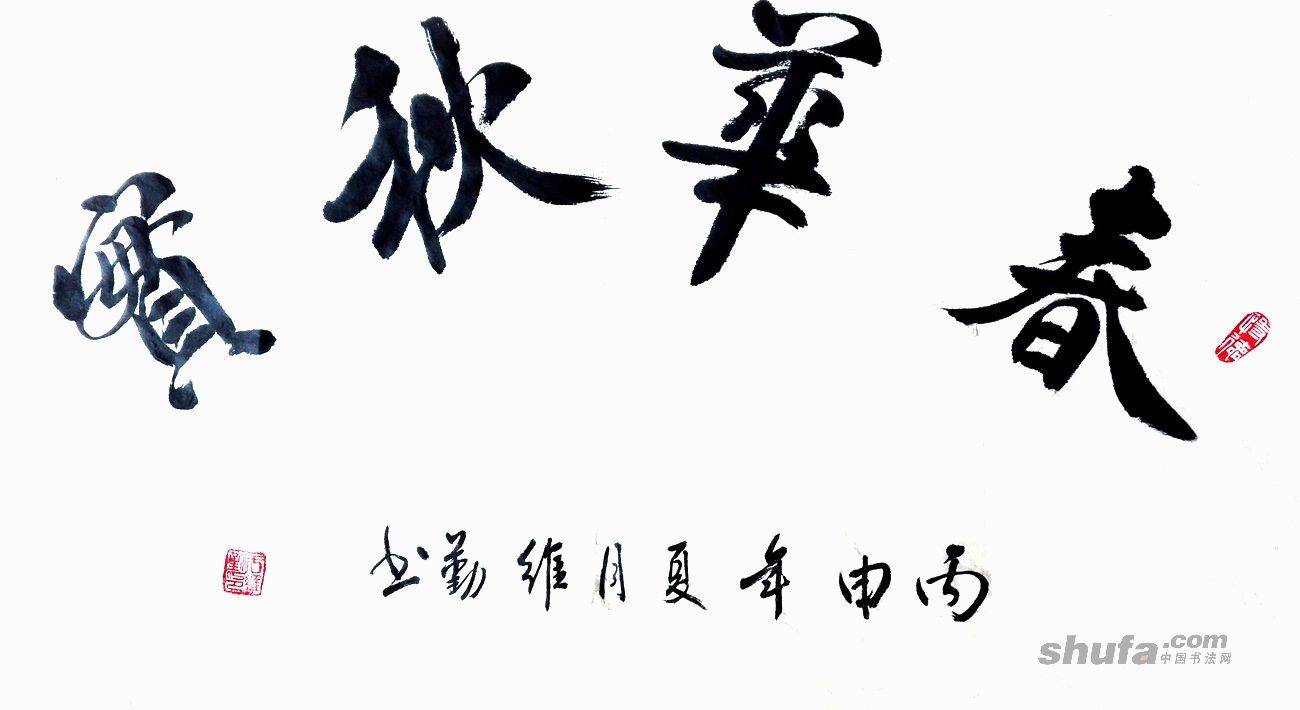 春華秋實
丙申年夏月維勤书
shufa.com
中国书法网